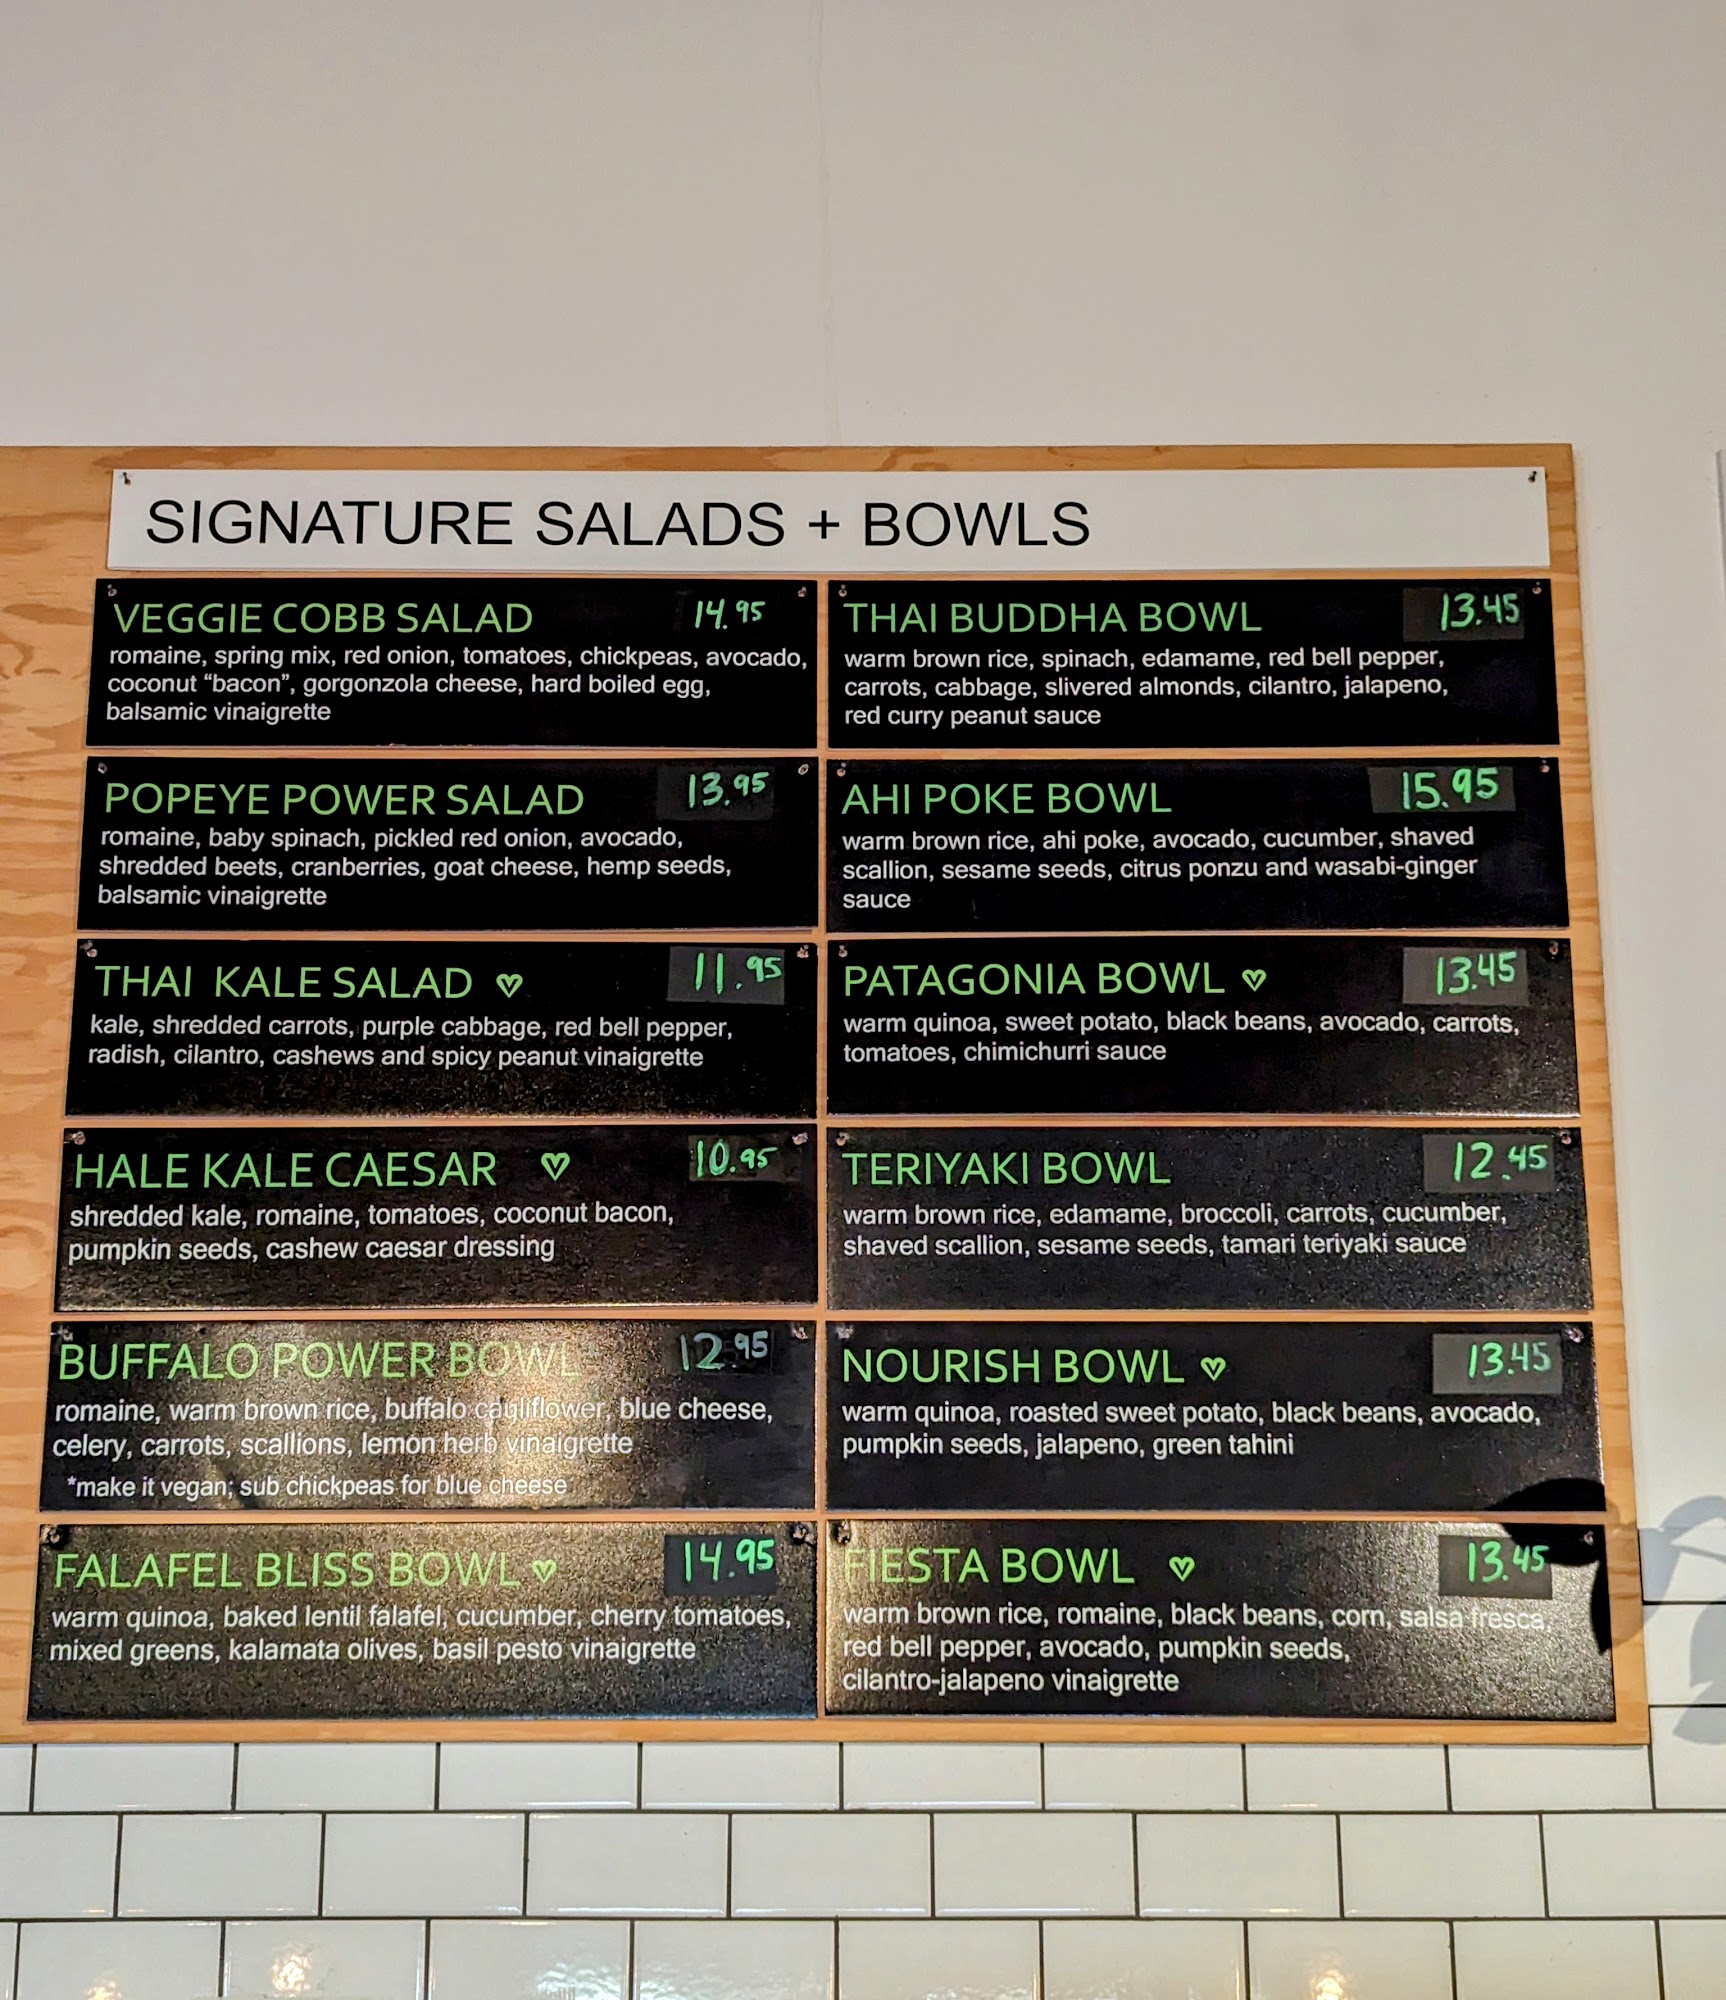 SIGNATURE SALADS + BOWLS
VEGGIE COBB SALAD 14.95
romaine, spring mix, red onion, tomatoes, chickpeas, avocado,
coconut “bacon”, gorgonzola cheese, hard boiled egg,
balsamic vinaigrette
POPEYE POWER SALAD 13.95
romaine, baby spinach, pickled red onion, avocado,
shredded beets, cranberries, goat cheese, hemp seeds,
balsamic vinaigrette
THAI KALE SALAD 11.95
kale, shredded carrots, purple cabbage, red bell pepper,
radish, cilantro, cashews and spicy peanut vinaigrette
HALE KALE CAESAR 10.95
shredded kale, romaine, tomatoes, coconut bacon,
pumpkin seeds, cashew caesar dressing
BUFFALO POWER BOWL 12.95
romaine, warm brown rice, buffalo cauliflower, blue cheese,
celery, carrots, scallions, lemon herb vinaigrette
*make it vegan; sub chickpeas for blue cheese
FALAFEL BLISS BOWL 14.95
warm quinoa, baked lentil falafel, cucumber, cherry tomatoes,
mixed greens, kalamata olives, basil pesto vinaigrette
THAI BUDDHA BOWL 13.45
warm brown rice, spinach, edamame, red bell pepper,
carrots, cabbage, slivered almonds, cilantro, jalapeno,
red curry peanut sauce
AHI POKE BOWL 15.95
warm brown rice, ahi poke, avocado, cucumber, shaved
scallion, sesame seeds, citrus ponzu and wasabi-ginger
sauce
PATAGONIA BOWL 13.45
warm quinoa, sweet potato, black beans, avocado, carrots,
tomatoes, chimichurri sauce
TERIYAKI BOWL 12.45
warm brown rice, edamame, broccoli, carrots, cucumber,
shaved scallion, sesame seeds, tamari teriyaki sauce
NOURISH BOWL 13.45
warm quinoa, roasted sweet potato, black beans, avocado,
pumpkin seeds, jalapeno, green tahini
FIESTA BOWL 13.45
warm brown rice, romaine, black beans, corn, salsa fresca,
red bell pepper, avocado, pumpkin seeds,
cilantro-jalapeno vinaigrette